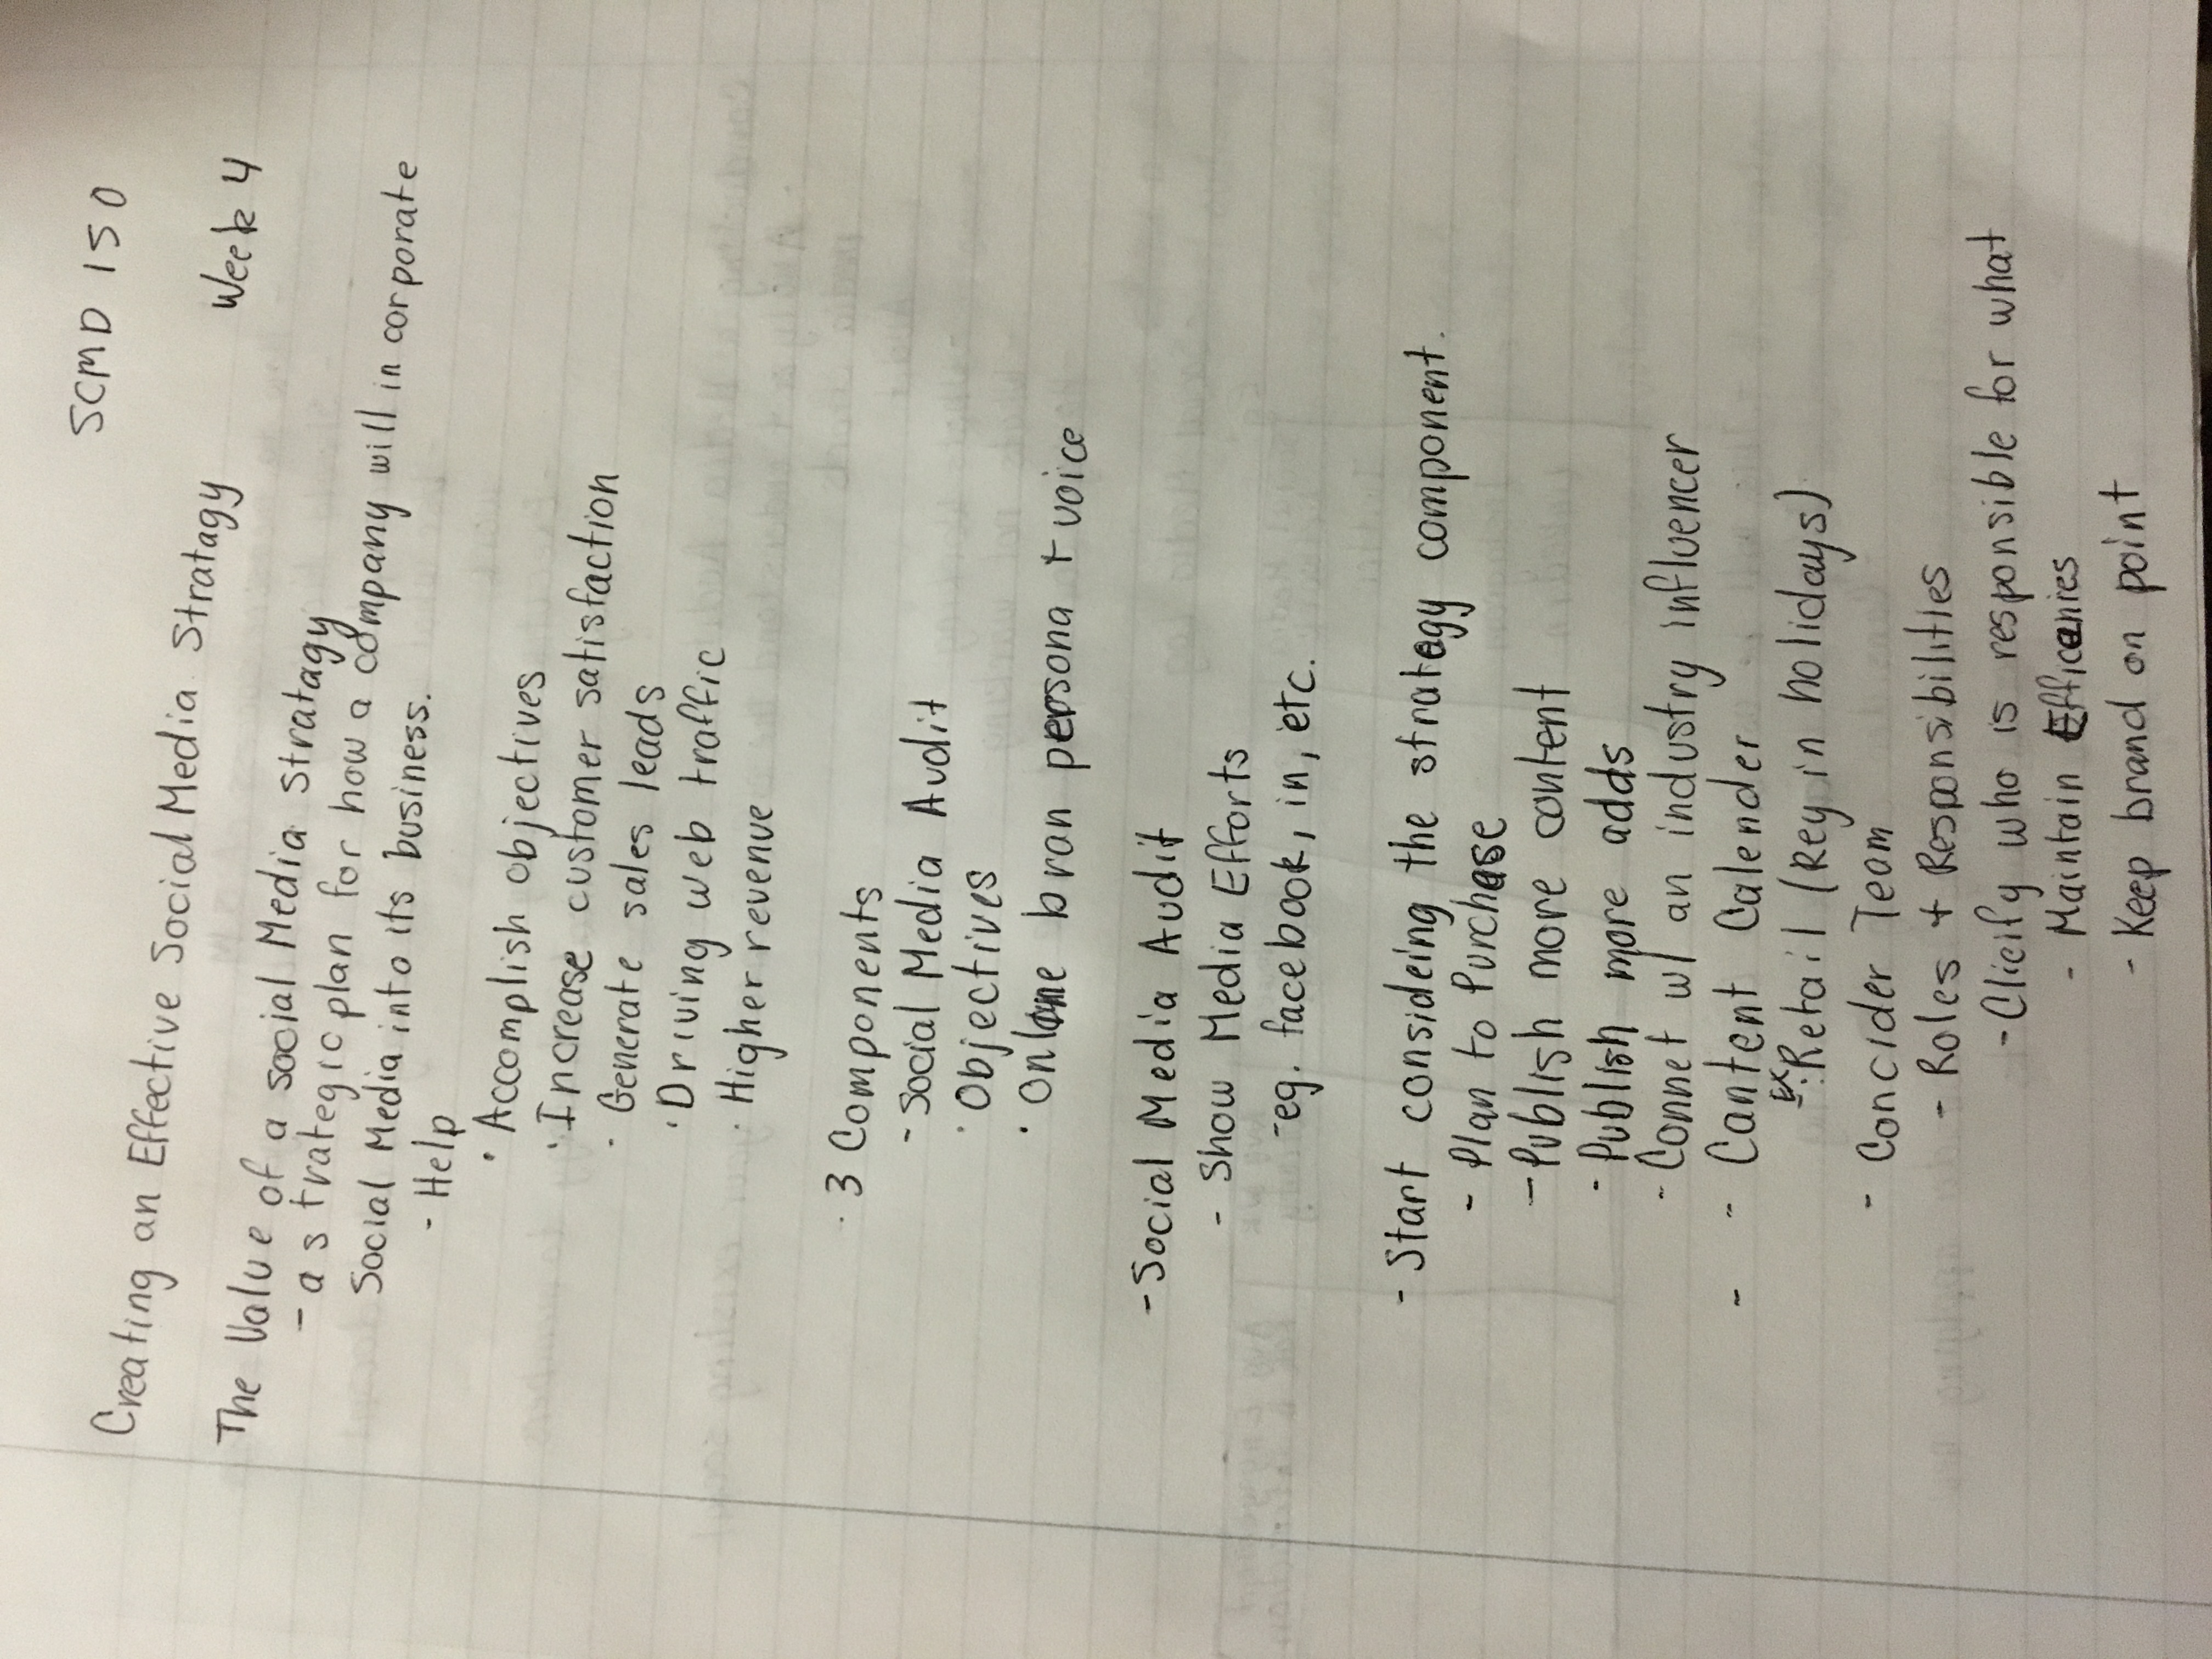 SCMD 150
Creating an Effective Social Media Stratagy
Week 4
The Value of a Social Media Stratagy
- a strategic plan for how a company will incorporate
Social Media into its business.
- Help
· Accomplish objectives
· Increase customer satisfaction
· Generate sales leads
· Driving web traffic
· Higher revenue
· 3 Components
- Social Media Audit
· Objectives
· Online bran persona + voice
- Social Media Audit
- Show Media Efforts
- eg. facebook, in, etc.
- Start consideing the strategy component.
- Plan to Purchase
- Publish more content
- Publish more adds
- Connet w/ an industry influencer
- - Cantent Calender
Ex: Retail (Key in holidays)
- Concider Team
- Roles + Responsibilities
- Clicify who is responsible for what
- Maintain
- Keep brand on point